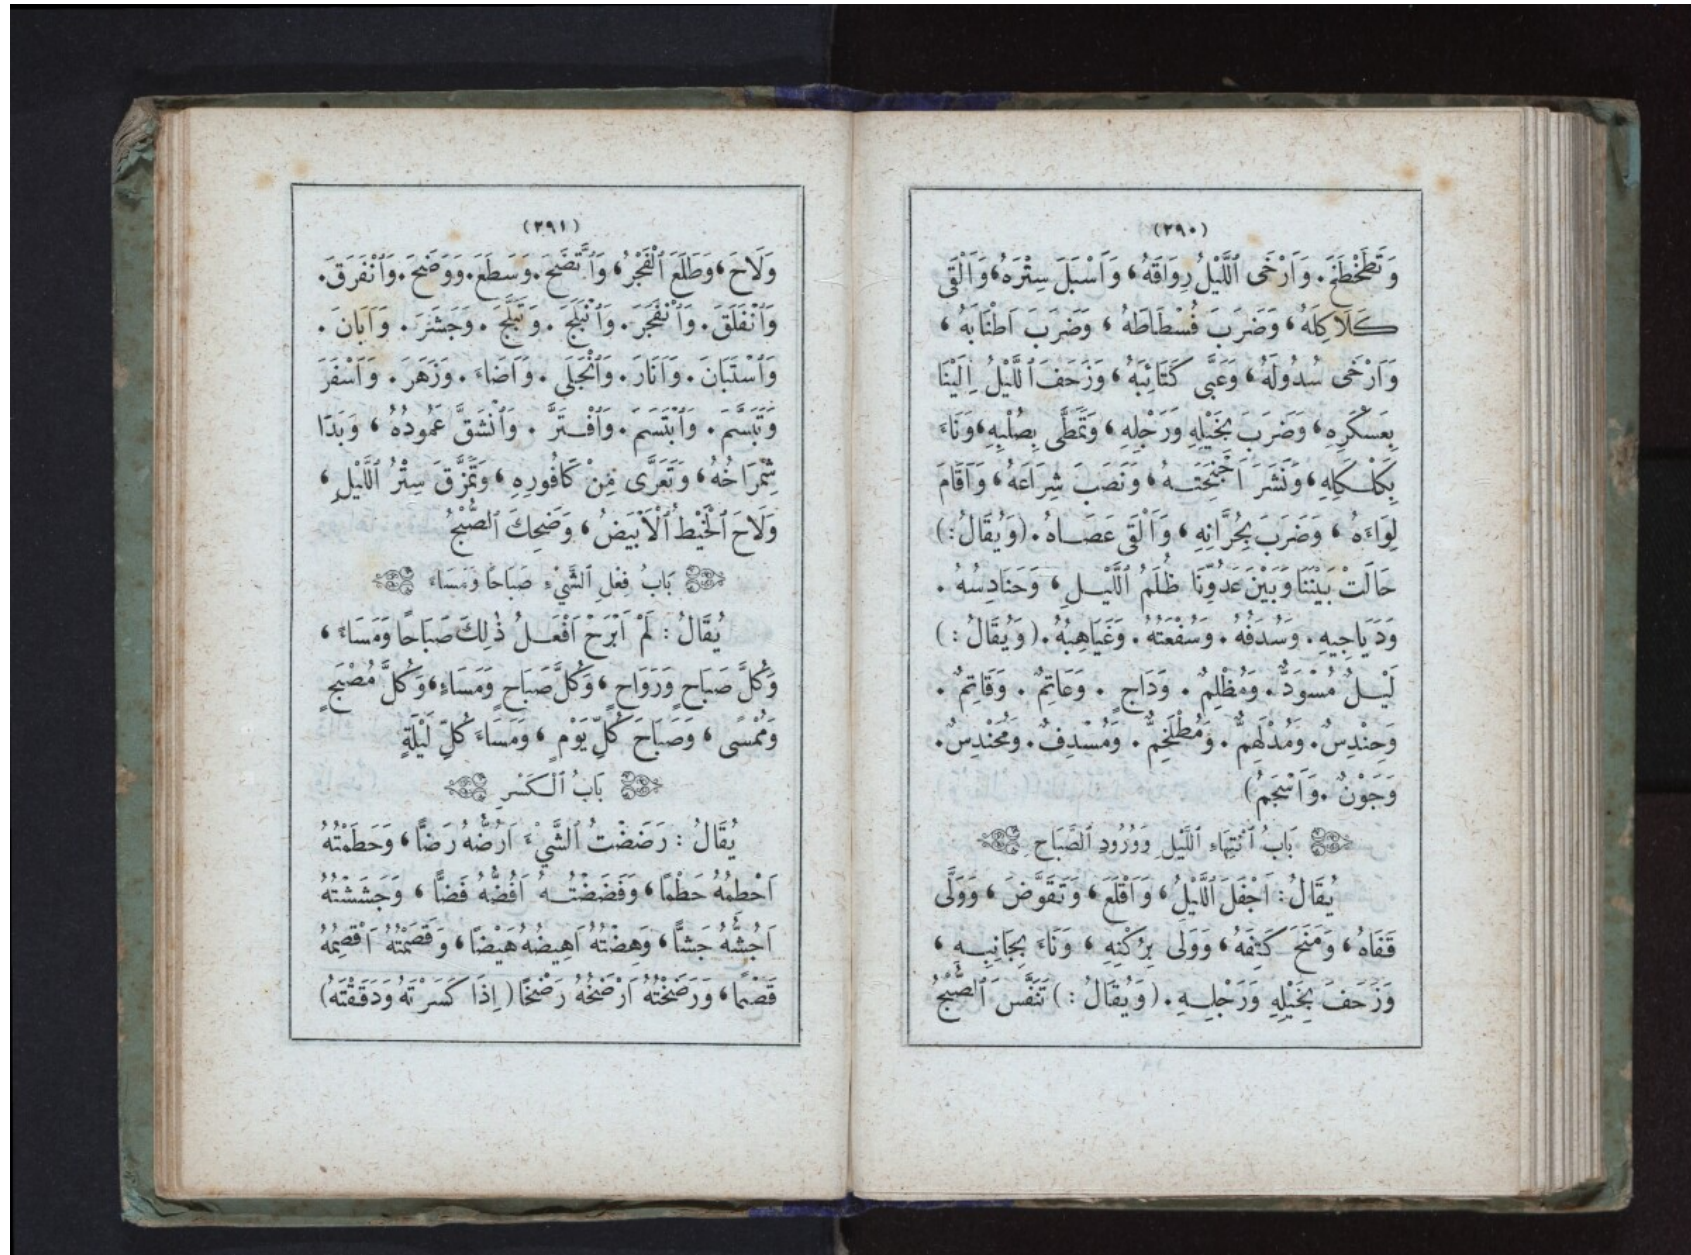 (٢٩٠)
وَتَطَخْطَخَ. وَاَرْخَى ٱللَّيْلُ رِوَاقَهُ، وَاَسْبَلَ سِتْرَهُ، وَاَلْقَى
كَلَاكِلَهُ، وَضَرَبَ فُسْطَاطَهُ، وَضَرَبَ اَطْنَابَهُ،
وَاَرْخَى سُدُولَهُ، وَعَبَّى كَتَائِبَهُ، وَزَحَفَ ٱللَّيْلُ اِلَيْنَا
بِعَسْكَرِهِ، وَضَرَبَ بِخَيْلِهِ وَرَجْلِهِ، وَتَمَطَّى بِصُلْبِهِ، وَنَاءَ
بِكَلْكَلِهِ، وَنَشَرَ اَجْنِحَتَهُ، وَنَصَبَ شِرَاعَهُ، وَاَقَامَ
لِوَاءَهُ، وَضَرَبَ بِجِرَانِهِ، وَاَلْقَى عَصَاهُ. (وَيُقَالُ:)
حَالَتْ بَيْنَنَا وَبَيْنَ عَدُوِّنَا ظُلَمُ ٱللَّيْلِ، وَحَنَادِسُهُ.
وَدَيَاجِيهِ. وَسُدَفُهُ. وَسُفْعَتُهُ. وَغَيَاهِبُهُ. (وَيُقَالُ:)
لَيْلٌ مُسْوَدٌّ. وَمُظْلِمٌ. وَدَاجٍ. وَعَاتِمٌ. وَقَاتِمٌ.
وَحِنْدِسٌ. وَمُدْلَهِمٌّ. وَمُطْلَخِمٌّ. وَمُسْدِفٌ. وَمُحَنْدِسٌ.
وَجَوْنٌ. وَاَسْحَمُ)
بَابُ ٱنْتِهَاءِ ٱللَّيْلِ وَوُرُودِ ٱلصَّبَاحِ
يُقَالُ: اَجْفَلَ ٱللَّيْلُ، وَاَقْلَعَ، وَتَقَوَّضَ، وَوَلَّى
قَفَاهُ، وَمَنَحَ كَتِفَهُ، وَوَلَّى بِرُكْنِهِ، وَنَاءَ بِجَانِبِهِ،
وَزَحَفَ بِخَيْلِهِ وَرَجْلِهِ. (وَيُقَالُ:) تَنَفَّسَ ٱلصُّبْحُ
(٢٩١)
وَلَاحَ، وَطَلَعَ ٱلْفَجْرُ، وَٱتَّضَحَ. وَسَطَعَ. وَوَضَحَ. وَٱنْفَرَقَ.
وَٱنْفَلَقَ. وَٱنْفَجَرَ. وَٱنْبَلَجَ. وَتَبَلَّجَ. وَجَشَرَ. وَاَبَانَ.
وَٱسْتَبَانَ. وَاَنَارَ. وَٱنْجَلَى. وَاَضَاءَ. وَزَهَرَ. وَاَسْفَرَ
وَتَبَسَّمَ. وَٱبْتَسَمَ. وَٱفْتَرَّ. وَٱنْشَقَّ عَمُودُهُ، وَبَدَا
شِمْرَاخُهُ، وَتَعَرَّى مِنْ كَافُورِهِ، وَتَمَزَّقَ سِتْرُ ٱللَّيْلِ،
وَلَاحَ ٱلْخَيْطُ ٱلْاَبْيَضُ، وَضَحِكَ ٱلصُّبْحُ
بَابُ فِعْلِ ٱلشَّيْءِ صَبَاحًا وَمَسَاءً
يُقَالُ: لَمْ اَبْرَحْ اَفْعَلُ ذٰلِكَ صَبَاحًا وَمَسَاءً،
وَكُلَّ صَبَاحٍ وَرَوَاحٍ، وَكُلَّ صَبَاحٍ وَمَسَاءٍ، وَكُلَّ مُصْبَحٍ
وَمُمْسًى، وَصَبَاحَ كُلِّ يَوْمٍ، وَمَسَاءَ كُلِّ لَيْلَةٍ
بَابُ ٱلْكَسْرِ
يُقَالُ: رَضَضْتُ ٱلشَّيْءَ اَرُضُّهُ رَضًّا، وَحَطَمْتُهُ
اَحْطِمُهُ حَطْمًا، وَفَضَضْتُهُ اَفُضُّهُ فَضًّا، وَجَشَشْتُهُ
اَجُشُّهُ جَشًّا، وَهِضْتُهُ اَهِيضُهُ هَيْضًا، وَقَصَمْتُهُ اَقْصِمُهُ
قَصْمًا، وَرَضَخْتُهُ اَرْضَخُهُ رَضْخًا (اِذَا كَسَرْتَهُ وَدَقَقْتَهُ)